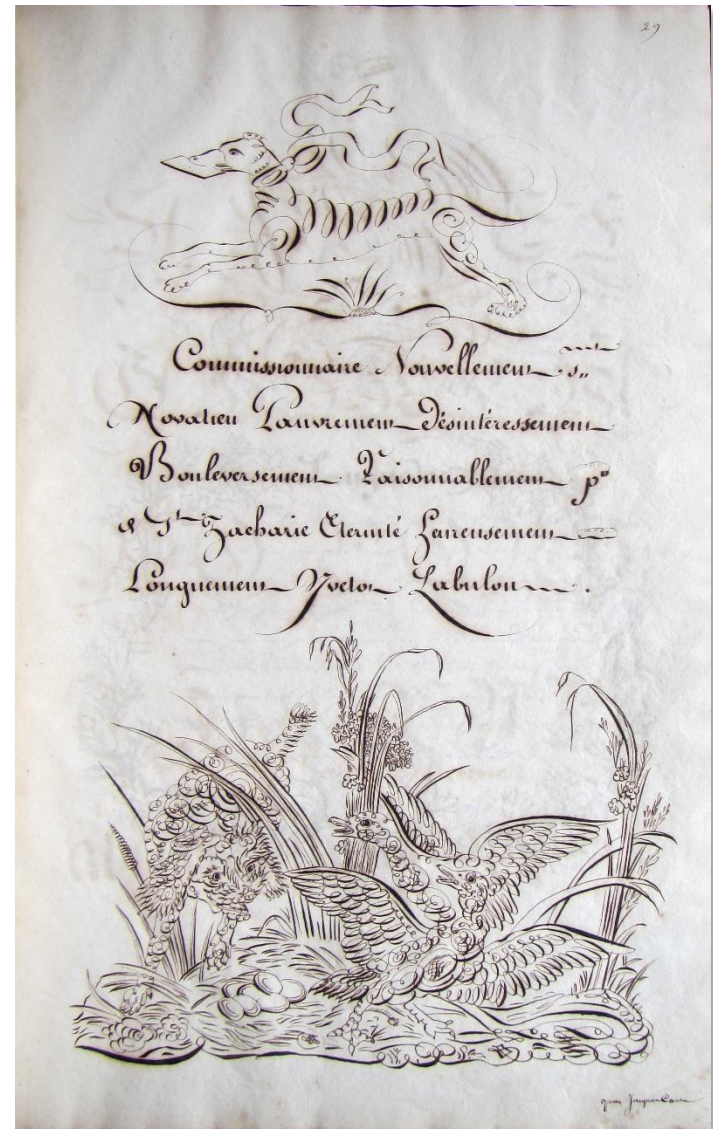 29
Commissionnaire Nouvellement
Novatien Pauvrement Désintéressement
Bouleversement Raisonnablement po
& St Zacharie Eternité Heureusement
Longuement Yvetot Labulon